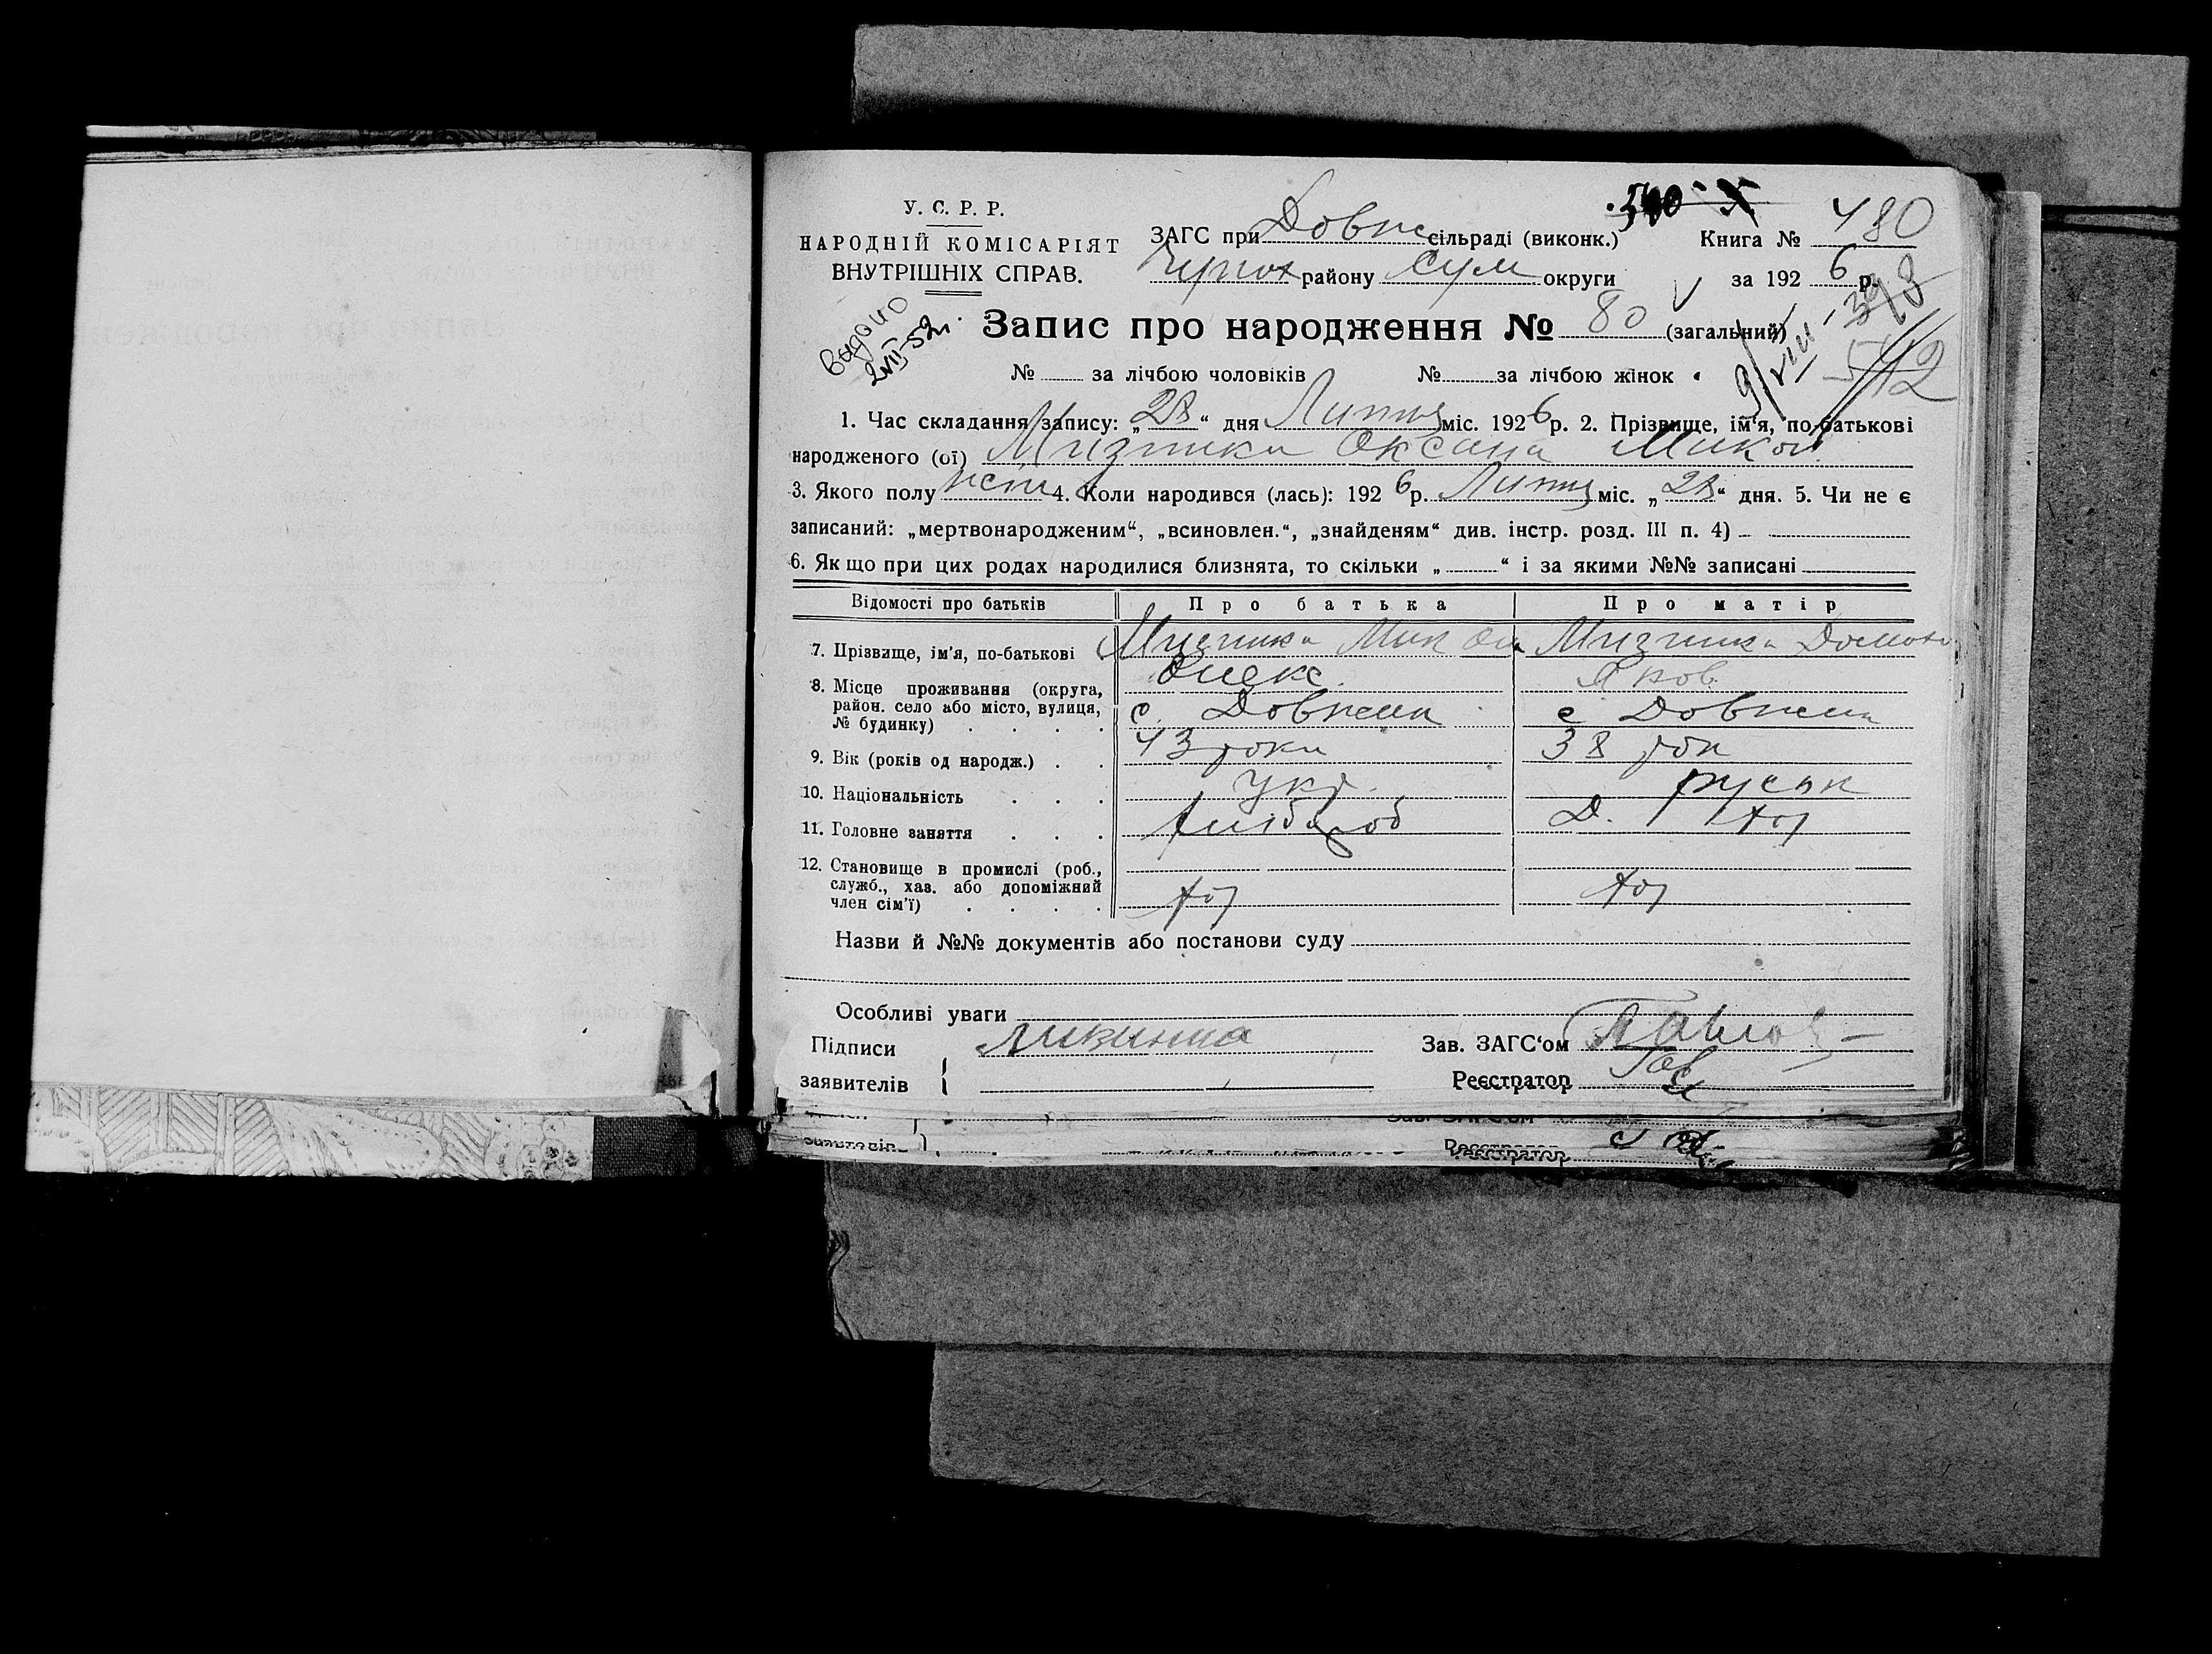 У. С. Р. Р.
НАРОДНІЙ КОМІСАРІЯТ
ВНУТРІШНІХ СПРАВ.
ЗАГС при Довж сільраді (виконк.) Книга № 480
району Сум округи за 1926 р.
видано
2-VII-52г.
Запис про народження № 80 (загальний)
542
№ за лічбою чоловіків № за лічбою жінок
1. Час складання запису: „28“ дня Липня міс. 1926 р. 2. Прізвище, ім'я, по-батькові
народженого (ої) Мизника Оксана Микол
3. Якого полу жін 4. Коли народився (лась): 1926 р. Липня міс. „28“ дня. 5. Чи не є
записаний: „мертвонародженим“, „всиновлен.“, „знайденям“ див. інстр. розд. III п. 4)
6. Якщо при цих родах народилися близнята, то скільки „ “ і за якими №№ записані
Відомості про батьків Про батька Про матір
7. Прізвище, ім'я, по-батькові Мизника Мик Мизника
Олекс. Яков.
8. Місце проживання (округа, район. село або місто, вулиця, № будинку) с. Довжик с Довжик
9. Вік (років од народж.) 43 роки 38 рок
10. Національність Укр. руськ
11. Головне заняття хлібороб Д. хоз
12. Становище в промислі (роб., служб., хаз. або допоміжний член сім'ї) хоз хоз
Назви й №№ документів або постанови суду
Особливі уваги
Підписи
заявителів
Зав. ЗАГС'ом
Реєстратор
Реєстратор